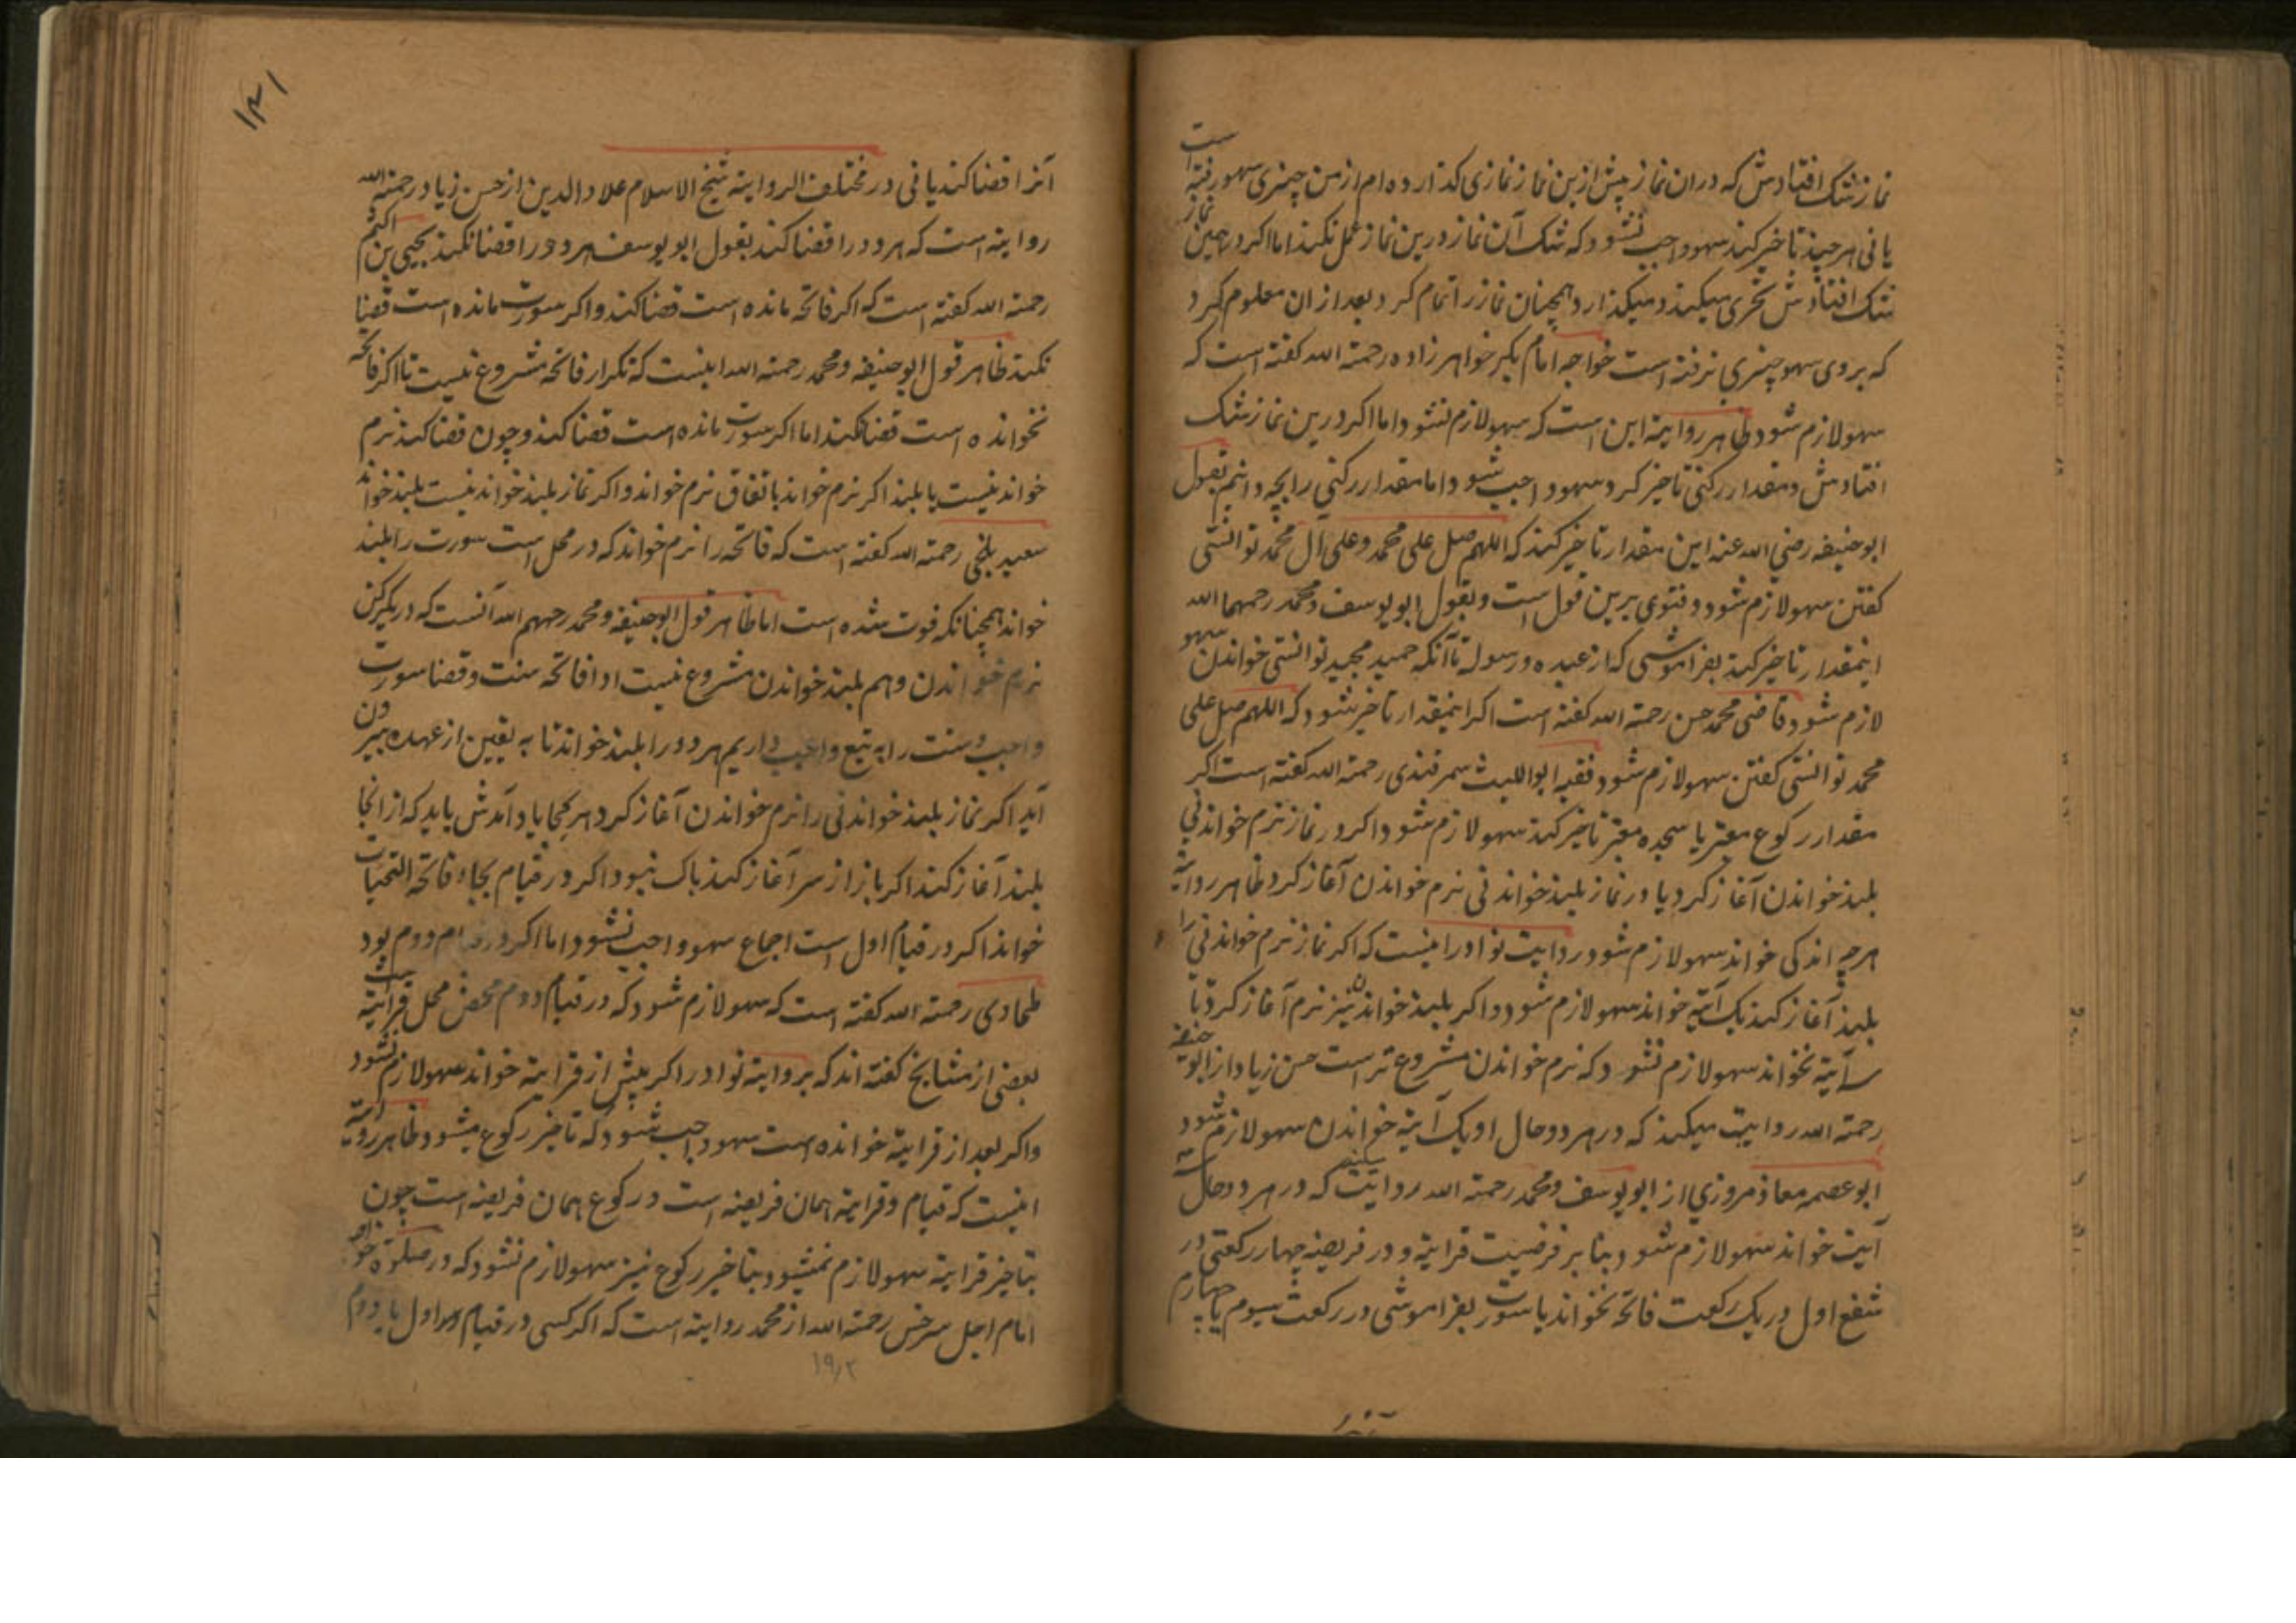 نماز شک افتادش که دران نماز پیش ازین نماز نمازی کذارده ام ازمن چیزی سهو رفته است
یانی هر چند تاخیر کند سهو واجب نشود که شک آن نماز درین نماز عمل نکند اما اکر در همین نماز
شک افتادش تحری میکند و میکذارد همچنان نماز را تمام کرد بعد ازان معلوم کرد
که بروی سهو چیزی نرفته است خواجه امام بکر خواهر زاده رحمة الله کفته است که
سهو لازم شود ظاهر روایة این است که سهو لازم نشود اما اکر درین نماز شک
افتادش و مقدار رکنی تاخیر کرد سهو واجب شود اما مقدار رکنی را بچه دانیم بقول
ابو حنیفه رضی الله عنه این مقدار تاخیر کند که اللهم صل علی محمد و علی آل محمد توانستی
کفتن سهو لازم شود و فتوی برین قول است و بقول ابو یوسف و محمد رحمهما الله
اینمقدار تاخیر کند بفراموشی که از عبده و رسوله تا آنکه حمید مجید توانستی خواندن سهو
لازم شود قاضی محمد حسن رحمة الله کفته است اکر اینمقدار تاخیر شود که اللهم صل علی
محمد توانستی کفتن سهو لازم شود فقیه ابو اللیث سمرقندی رحمة الله کفته است اکر
مقدار رکوع معتبر یا سجده معتبر تاخیر کند سهو لازم شود و اکر در نماز نرم خواندنی
بلند خواندن آغاز کرد یا در نماز بلند خواندنی نرم خواندن آغاز کرد ظاهر روایة
هرچه اندکی خواند سهو لازم شود در روایت نوادر اینست که اکر نماز نرم خواندنی را
بلند آغاز کند یک آیة خواند سهو لازم شود و اکر بلند خواندنی نرم آغاز کرد تا
سه آیة نخواند سهو لازم نشود که نرم خواندن مشروع تر است حسن زیاد از ابو حنیفه
رحمة الله روایت میکند که در هر دو حال او یک آیة خواندن سهو لازم شود
ابو عصمه معاذ مروزی از ابو یوسف و محمد رحمة الله روایت میکند که در هر دو حال سه
آیت خواند سهو لازم شود بنا بر فرضیت قرایة و در فریضه چهار رکعتی در
شفع اول در یک رکعت فاتحه نخواند یا سورت بفراموشی در رکعت سیوم یا چهارم
۱۳۱
آنرا قضا کند یا نی در مختلف الروایة شیخ الاسلام علاء الدین از حسن زیاد رحمة الله
روایة است که هر دو را قضا کند بقول ابو یوسف هر دو را قضا نکند یحیی بن اکثم
رحمة الله کفته است که اکر فاتحه مانده است قضا کند و اکر سورت مانده است قضا
نکند ظاهر قول ابو حنیفه و محمد رحمة الله اینست که تکرار فاتحه مشروع نیست تا اکر فاتحه
نخوانده است قضا نکند اما اکر سورت مانده است قضا کند و چون قضا کند نرم
خواند نیست یا بلند اکر نرم خواند باتفاق نرم خواند و اکر نماز بلند خواند نیست بلند خواند
سعید بلخی رحمة الله کفته است که فاتحه را نرم خواند که در محل است سورت را بلند
خواند همچنانکه فوت شده است اما ظاهر قول ابو حنیفه و محمد رحمهم الله آنست که در یکرکن
نرم خواندن و هم بلند خواندن مشروع نیست ادا فاتحه سنت و قضا سورت
واجب و سنت را به تبع واجب داریم هر دو را بلند خواند تا به یقین از عهده بیرون
آید اکر نماز بلند خواندنی را نرم خواندن آغاز کرد هر کجا یاد آمدش باید که از انجا
بلند آغاز کند اکر باز از سر آغاز کند باک نبود اکر در قیام بجاء فاتحه التحیات
خواند اکر در قیام اول است اجماع سهو واجب نشود اما اکر در قیام دوم بود
طحاوی رحمة الله کفته است که سهو لازم شود که در قیام دوم محض محل قرایة است
بعضی از مشایخ کفته اند که بروایة نوادر اکر پیش از قرایة خواند سهو لازم نشود
و اکر بعد از قرایة خوانده است سهو واجب شود که تاخیر رکوع میشود ظاهر روایة
اینست که قیام و قرایة همان فریضه است و رکوع همان فریضه است چون
بتاخیر قرایة سهو لازم نمیشود بتاخیر رکوع نیز سهو لازم نشود که در صلوة
امام اجل سرخسی رحمة الله از محمد روایة است که اکر کسی در قیام اول یا دوم
۱۹۲